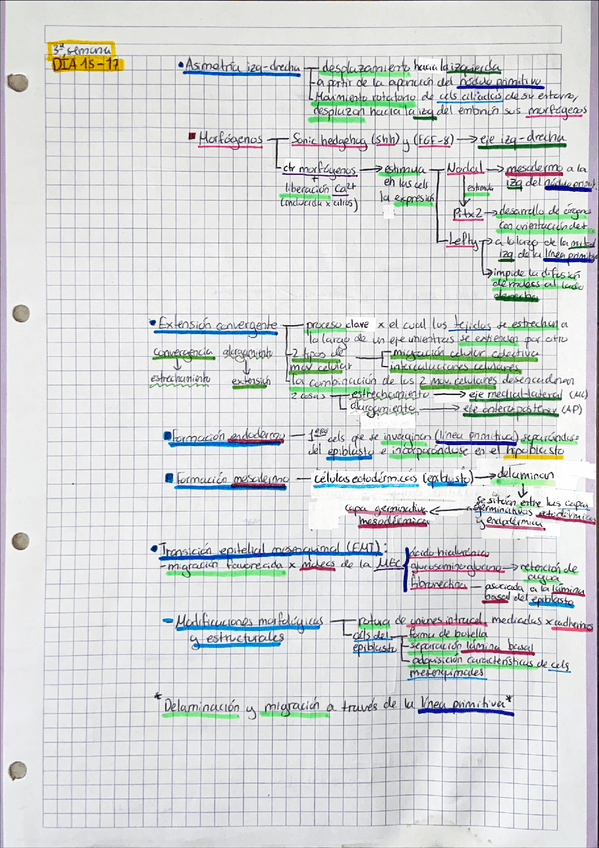 3ª semana
DÍA 15-17
• Asimetría izq-drecha
desplazamiento hacia la izquierda
a partir de la aparición del nódulo primitivo
Movimiento rotatorio de cels ciliadas de su entorno,
desplazan hacia la izq del embrión sus morfógenos
Morfógenos
Sonic hedgehog (Shh) y (FGF-8) → eje izq-drecha
ctr morfógenos
+
liberación Ca2+
(inducida x cilios)
→ estimula
en las cels
la expresión
Nodal → mesodermo a la
izq del línea primit
estimula
Pitx2 → desarrollo de órganos
con orientación
Lefty → a lo largo de la mitad
izq de la línea primitiva
impide la difusión
al lado
derecho
• Extensión convergente
proceso clave x el cual los tejidos se estrechan a
lo largo de un eje mientras se extienden por otro
convergencia alargamiento
estrechamiento extensión
2 tipos de
mov celular
migración celular colectiva
intercalaciones celulares
la combinación de los 2 mov. celulares desencadenan
2 cosas
estrechamiento → eje medial-lateral (ML)
alargamiento → eje anteroposterior (AP)
• Formación endodermo — 1eras cels que se invaginan (línea primitiva) separándose
del epiblasto e incorporándose en el hipoblasto
• Formación mesodermo — células ectodérmicas (epiblasto) → delaminan
se sitúan entre las capas
germinativas ectodérmicas
y endodérmicas
capa germinativa
mesodérmica
• Transición epitelial mesenquimal (EMT):
- migración favorecida x moléculas de la MEC
ácido hialurónico
glucosaminoglucano → retención de
agua
fibronectina — asociada a la lámina
basal del epiblasto
- Modificaciones morfológicas
y estructurales
rotura de uniones intracel mediadas x cadherinas
céls del
epiblasto
forma de botella
separación lámina basal
adquisición características de cels
mesenquimales
*Delaminación y migración a través de la línea primitiva*